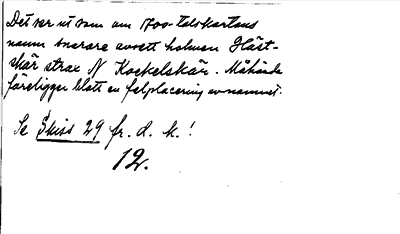 Det ser ut som om 1700-talskartans
namn snarare avsett holmen Häst-
skär strax N Kockelskär. Måhända
föreligger blott en felplacering av namnet.
Se Skiss 29 fr. d. k.!
12.